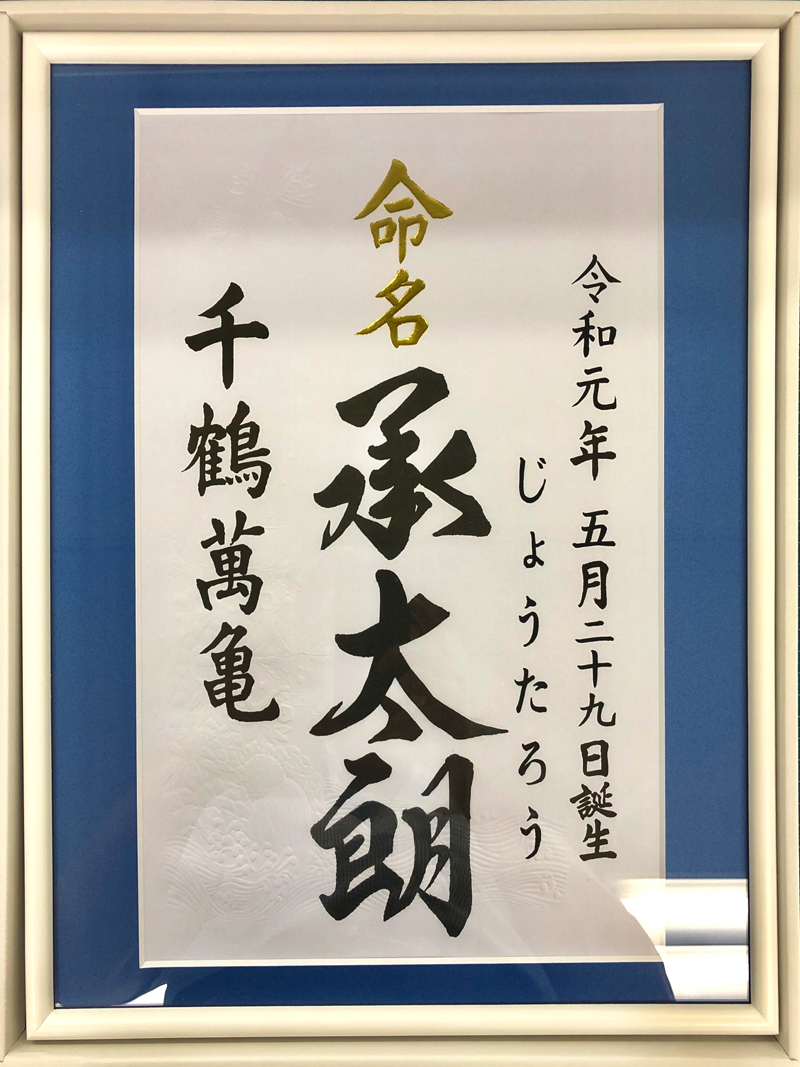 令和元年 五月二十九日誕生
じょうたろう
命名
承太朗
千鶴萬亀